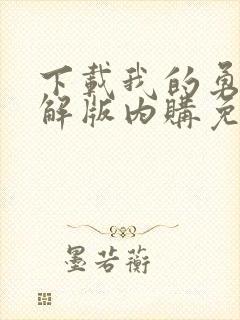 下載我的勇
解版內購免
墨若蘅